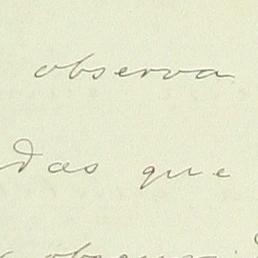 observa
das que